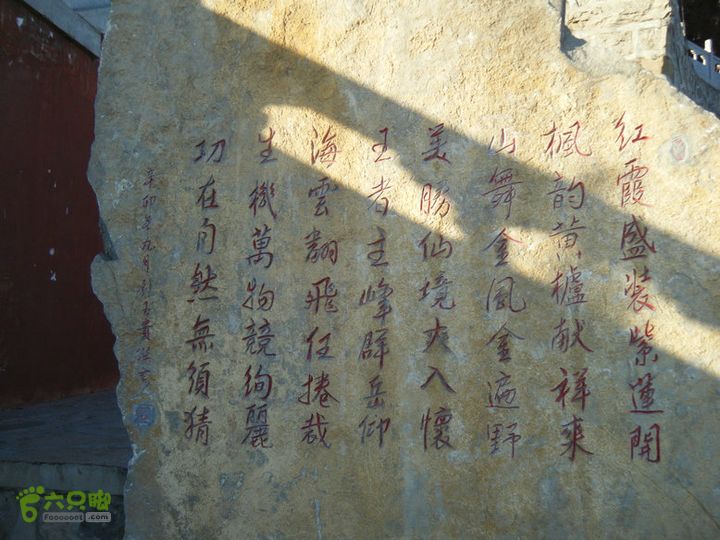 红霞盛装紫莲開
楓韵黄櫨献祥来
山舞金風金遍野
美勝仙境爽入懷
王者主峰群岳仰
海雲翻飛任捲裁
生機萬物競絢麗
功在自然無須猜
辛卯年九月
六只脚
Foooooot.com